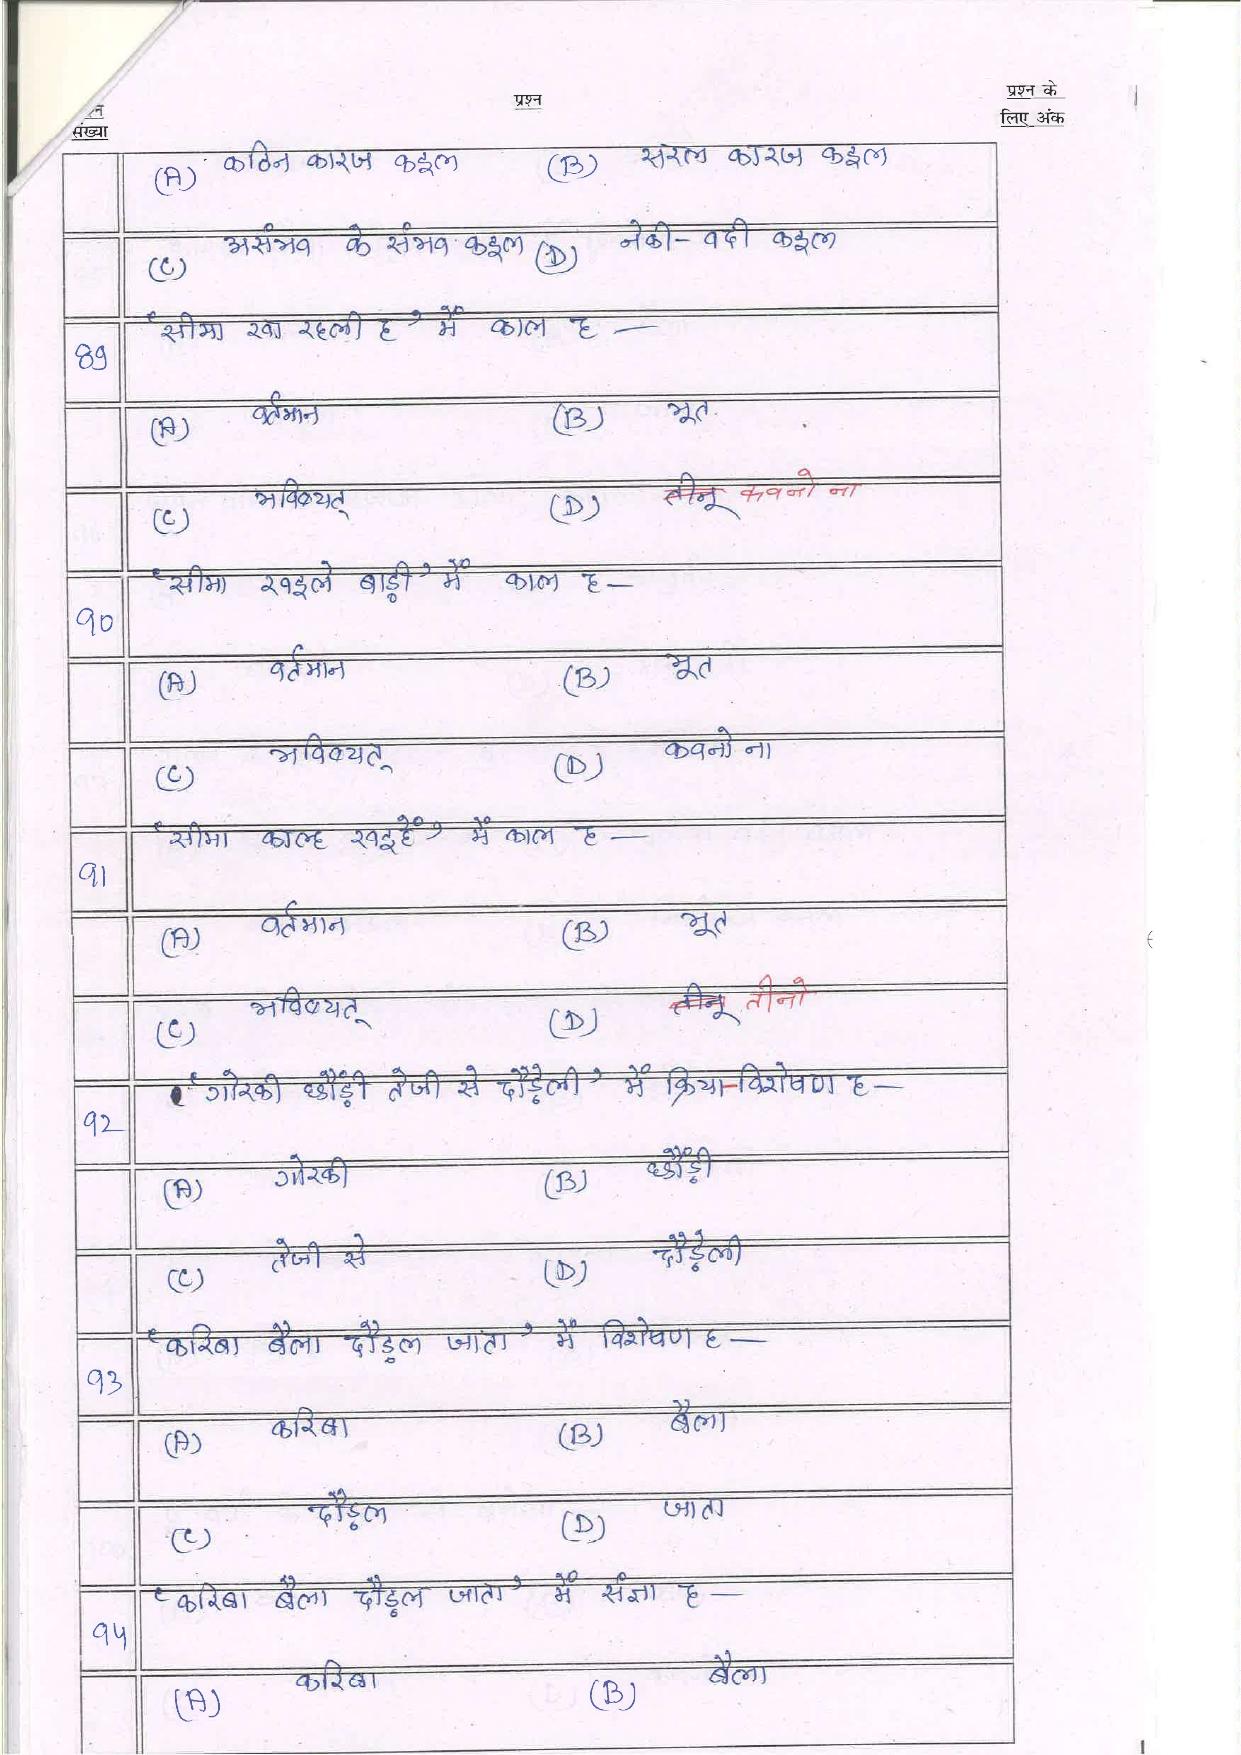 प्रश्न संख्या प्रश्न प्रश्न के लिए अंक
(A) कठिन कारज कइल (B) सरल कारज कइल
(C) असंभव के संभव कइल (D) नेकी-वदी कइल
89 'सीमा खा रहली ह' में काल ह —
(A) वर्तमान (B) भूत
(C) भविष्यत् (D) तीनू कवनो ना
90 'सीमा खइले बाड़ी' में काल ह —
(A) वर्तमान (B) भूत
(C) भविष्यत् (D) कवनो ना
91 'सीमा काल्ह खइहें' में काल ह —
(A) वर्तमान (B) भूत
(C) भविष्यत् (D) तीनू तीनो
92 'गोरकी छौंड़ी तेजी से दौड़ेली' में क्रिया-विशेषण ह —
(A) गोरकी (B) छौंड़ी
(C) तेजी से (D) दौड़ेली
93 'करिबा बैला दौड़ल जाता' में विशेषण ह —
(A) करिबा (B) बैला
(C) दौड़ल (D) जाता
94 'करिबा बैला दौड़ल जाता' में संज्ञा ह —
(A) करिबा (B) बैला